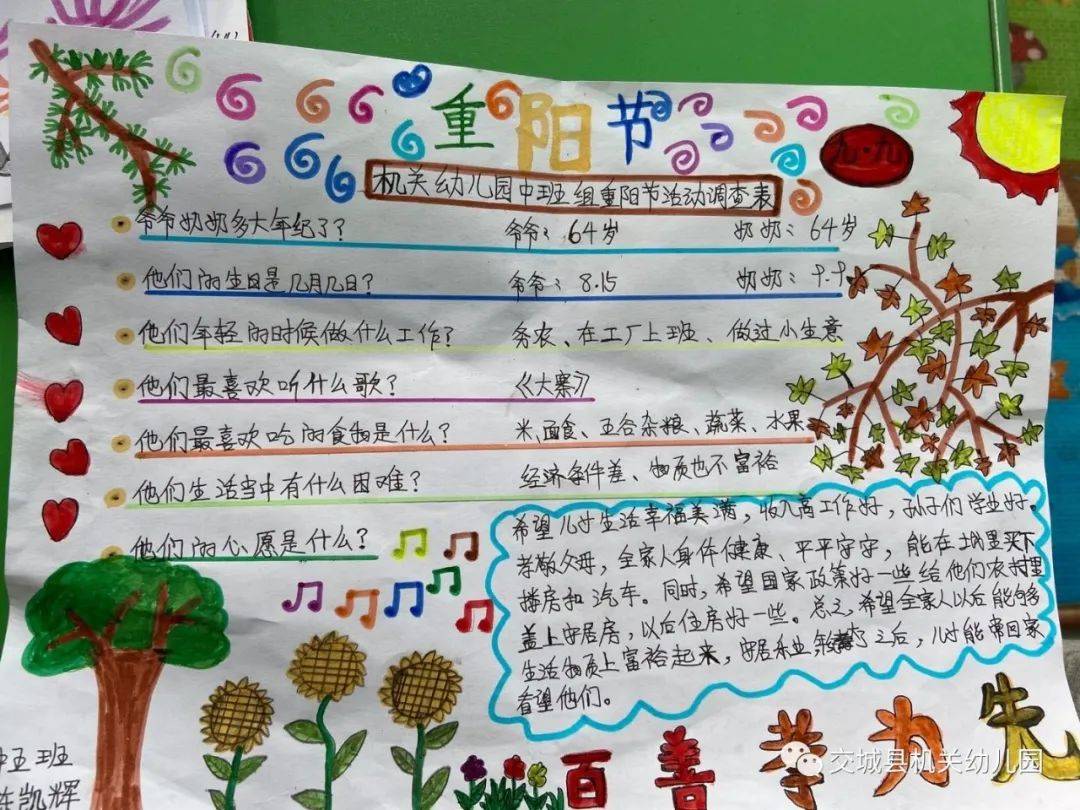 重阳节
九·九
机关幼儿园中班组重阳节活动调查表
爷爷奶奶多大年纪了? 爷爷:64岁 奶奶:64岁
他们的生日是几月几日? 爷爷:8.15 奶奶:
他们年轻的时候做什么工作? 务农、在工厂上班、做过小生意
他们最喜欢听什么歌? 《大寨》
他们最喜欢吃的食物是什么? 米、面食、五谷杂粮、蔬菜、水果
他们生活当中有什么困难? 经济条件差、物质也不富裕
他们的心愿是什么?
希望儿女生活幸福美满,收入高工作好,孙子们学业好。
孝敬父母,全家人身体健康、平平安安,能在城里买下
楼房和汽车。同时,希望国家政策好一些给他们农村里
盖上安居房,以后住房好一些。总之,希望全家人以后能够
生活物质上富裕起来,安居乐业 之后,儿女能常回家
看望他们。
百善孝为先
中五班
陈凯辉
交城县机关幼儿园